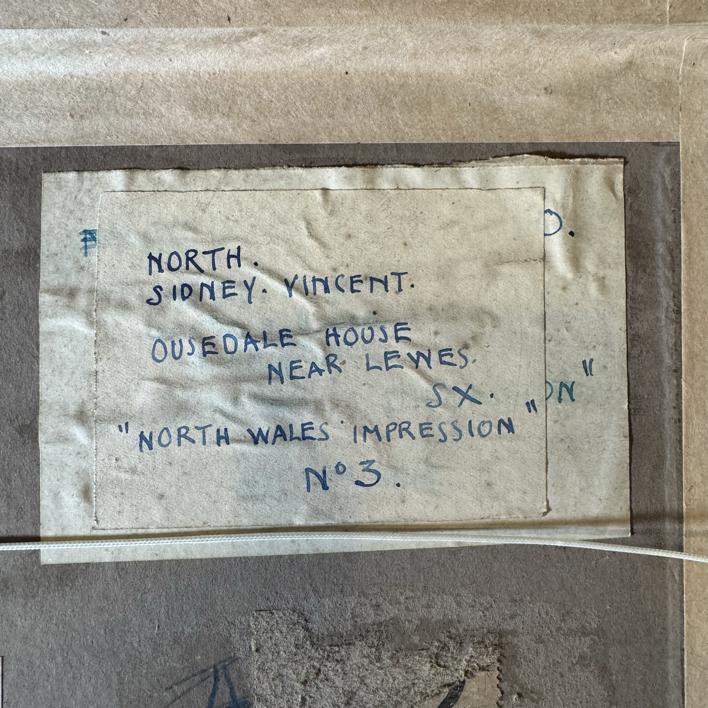 NORTH.
SIDNEY. VINCENT.
OUSEDALE HOUSE
NEAR LEWES.
SX.
"NORTH WALES IMPRESSION"
Nº 3.